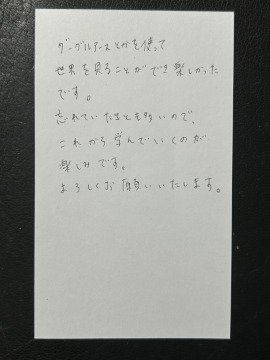 グーグルアースとかを使って
世界を見ることができ楽しかった
です。
忘れていたことも多いので、
これから学んでいくのが
楽しみです。
よろしくお願いいたします。